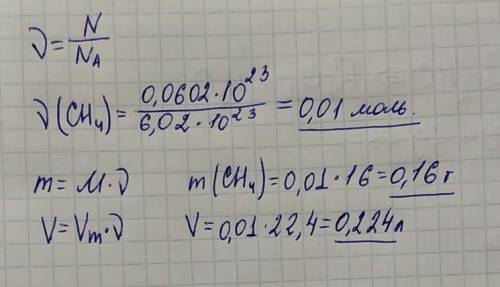 ν = N / N_A
ν(CH₄) = 0,0602·10²³ / 6,02·10²³ = 0,01 моль.
m = M·ν m(CH₄) = 0,01·16 = 0,16 г
V = Vm·ν V = 0,01·22,4 = 0,224 л